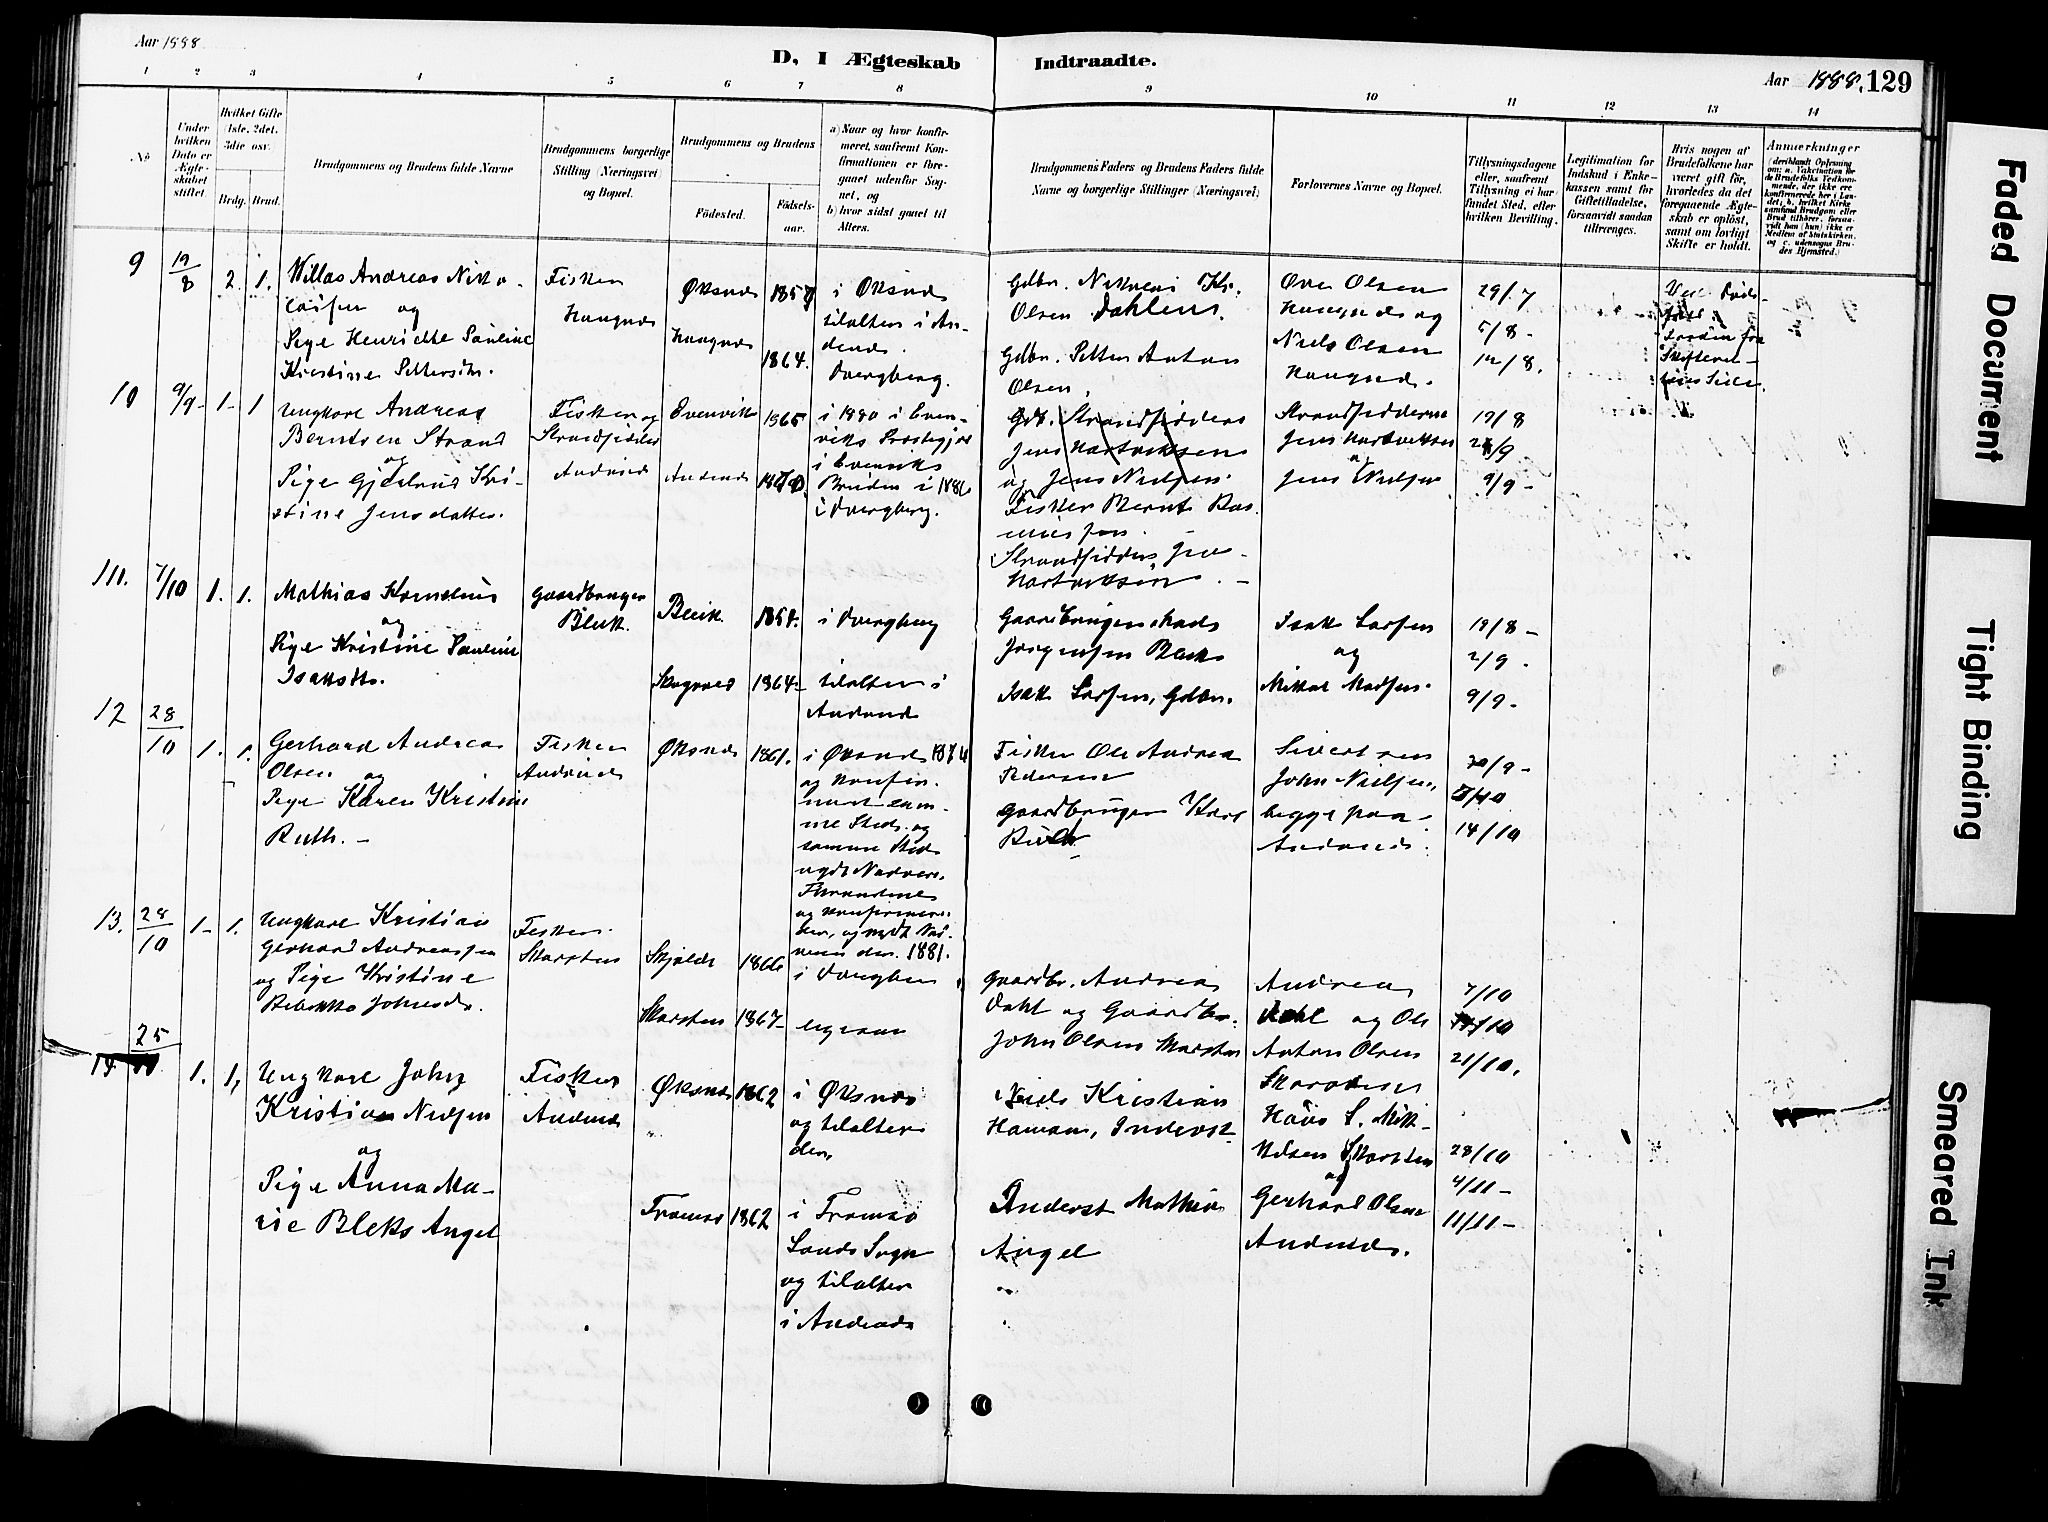 Aar 1888
D, I Ægteskab Indtraadte.
Aar 1888. 129
1 2 3 4 5 6 7 8 9 10 11 12 13 14
No
Under hvilken Dato er Ægteskabet stiftet.
Hvilket Gifte (1ste, 2det, 3die osv.
Brdg. Brud.
Brudgommens og Brudens fulde Navne
Brudgommens borgerlige Stilling (Næringsvei) og Bopæl.
Brudgommens og Brudens
Födested.
Födsels-aar.
a) Naar og hvor konfirmeret, saafremt Konfirmationen er foregaaet udenfor Sognet, og
b) hvor sidst gaaet til Alters.
Brudgommens Faders og Brudens Faders fulde Navne og borgerlige Stillinger (Næringsvei)
Forlovernes Navne og Bopæl.
Tillysningsdagene eller, saafremt Tillysning ei har fundet Sted, efter hvilken Bevilling.
Legitimation for Indskud i Enkekassen samt for Giftetilladelse, forsaavidt saadan tiltrænges.
Hvis nogen af Brudefolkene har været gift för, hvorledes da det foregaaende Ægteskab er oplöst, samt om lovligt Skifte er holdt.
Anmærkninger
(deriblandt Oplysning om: a. Vakcination for de Brudefolks Vedkommende, der ikke ere konfirmerede her i Landet, b. hvilket Kirkesamfund Brudgom eller Brud tilhörer, forsaavidt han (hun) ikke er Medlem af Statskirken, og c. udensogns Brudes Hjemsted.)
9 19/8 2. 1. Andreas
og
Pige Henriette Pauline
Kristine Pettersdtr.
Fisker
Øksnes 1857
1864.
i Øksnes
tilalters i An-
denes.
Dvergberg.
Gdbr.
Olsen Dahlens.
Gdbr. Petter Anton
Olsen.
Ove Olsen
og
Niels Olsen
29/7
5/8 -
12/8.
10 9/9- 1- 1
Ungkarl Andreas
Berntsen Strand
og
Pige Kri-
stine Jensdatter.
Fisker og
Strandsidder
Andenes
Evenvik 1865
Andenes
i 1880 i Even-
viks Præstegjæld
i Evenviks
Bruden i 1886
i Dvergberg.
Gdb. Strandsidders
Jens Hartviksen
og Jens Nielsen.
Fisker Bernt Ras-
mussen
Strandsidder Jens
Hartviksen. -
Strandsidderne
Jens Hartviksen
og
Jens Nielsen
19/8
2/9
9/9 -
11. 7/10 1. 1.
Mathias Kornelius
og
Pige Kristine Pauline
Isaksdtr.
Gaardbruger
Bleik.
Bleik. 1854.
1864-
i Dvergberg
tilalters i
Andenes
Gaardbruger Mads
Jørgensen Bleik
Isak Larsen, Gdbr.
Isak Larsen
og
Mikal Madsen.
19/8 -
2/9.
9/9 -
12 28/10 1. 1.
Gerhard Andreas
Olsen og
Pige Karen Kristine
Ruth. -
Fisker
Andenes
Øksnes 1861.
i Øksnes
og konfir-
meret sam-
me Sted. og
samme Sted
nydt Nadvere.
og konfirmeret
og nydt Nad-
veren den. 1881.
Fisker Ole Andreas
Pedersen
Gaardbruger
Sivertsen
John Nielsen,
begge paa
Andenes.
/9 -
/10
14/10
13. 28/10 1- 1.
Ungkarl Kristian
Gerhard Andreassen
og Pige Kristine
Rebekka Johnsdr.
Fisker.
Skarsten
1866
Skarsten 1867-
i Dvergberg
Gaardbr. Andreas
Dahl og Gaardbr.
John Olsen Skarsten
Andreas
Dahl og Ole
Anton Olsen
7/10
14/10
21/10.
14. 25/11 1. 1,
Ungkarl John
Kristian Nielsen
og
Pige Anna Ma-
rie Bleks Angel
Fisker
Andenes
Øksnes 1862
"
Tromsø 1862
i Øksnes
og tilalters
der.
i Tromsø
Lands Sogn
og tilalters
i Andenes
Niels Kristian
Haman, Inderst
Inderst Mathias
Angel
"
Hans S. Mik-
kelsen Skarsten
og
Gerhard Olsen
Andenes.
28/10
4/11 -
11/11 -
Faded Document
Tight Binding
Smeared Ink